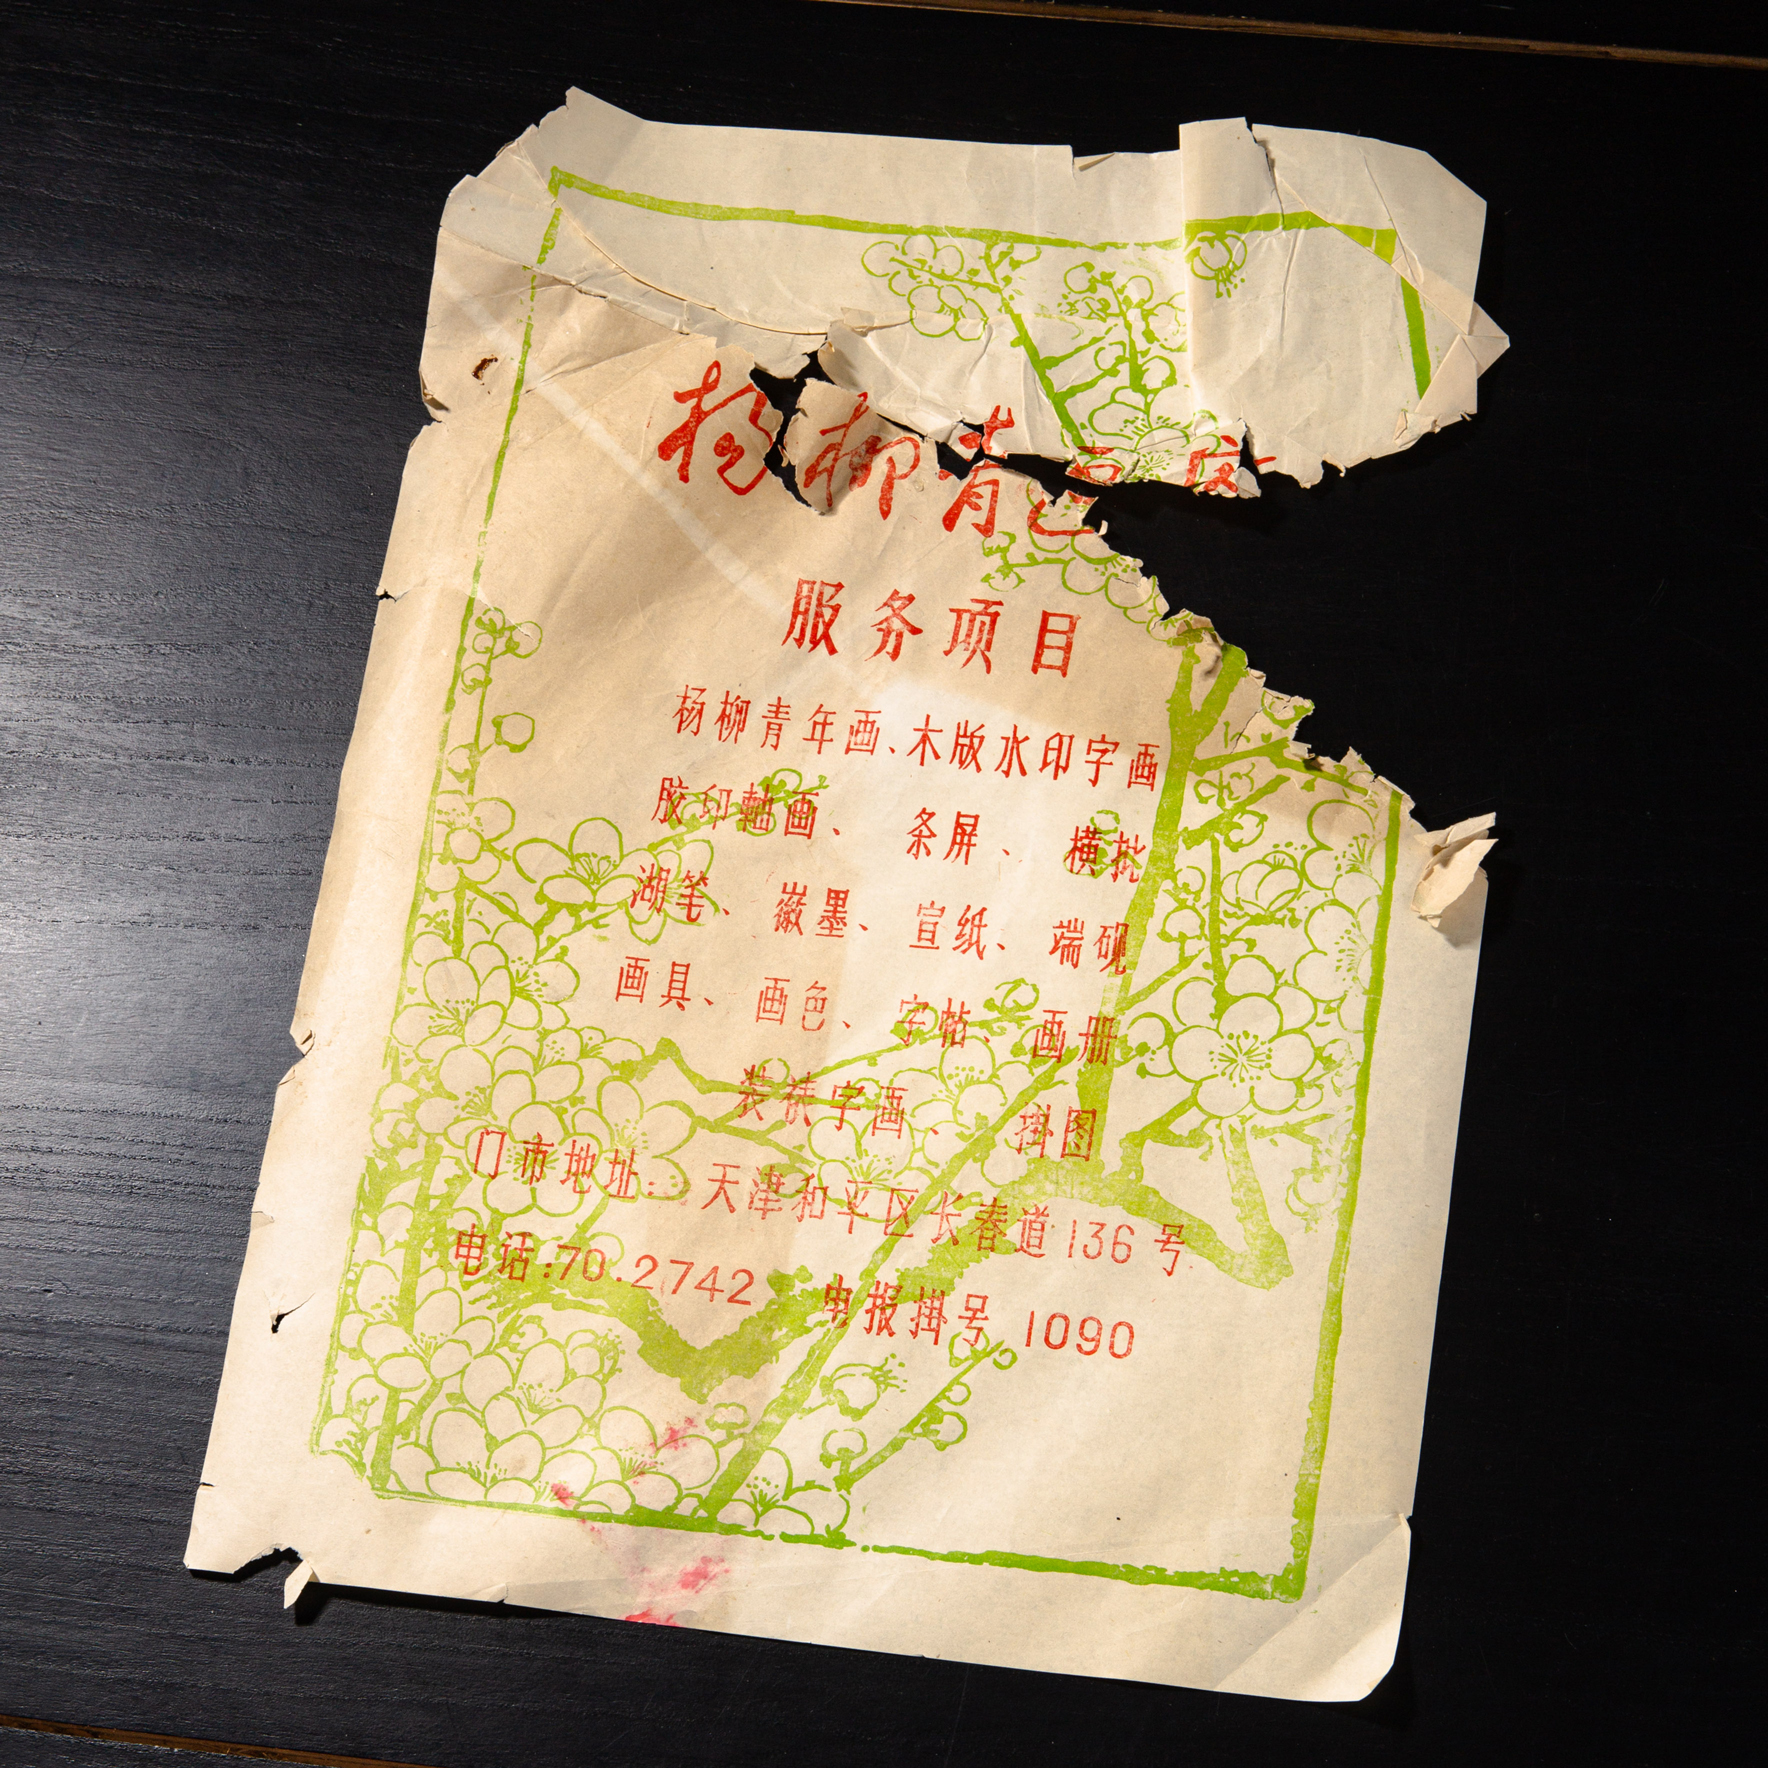 杨柳青画店
服务项目
杨柳青年画、木版水印字画
胶印軸画、 条屏、 横批
湖笔、 徽墨、 宣纸、 端砚
画具、 画色、 字帖、 画册
装裱字画、 掛图
门市地址: 天津和平区长春道136号
电话:70.2742 电报掛号 1090